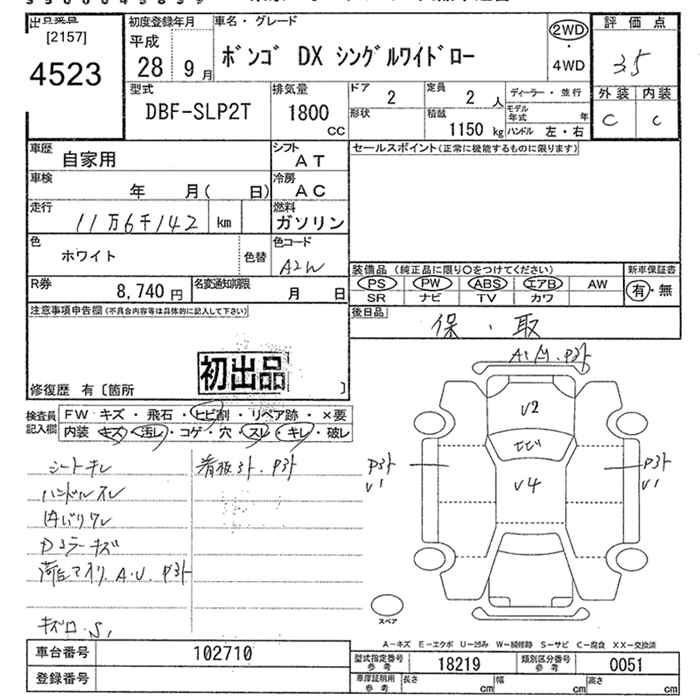 出品業
[2157]
4523
初度登録年月
平成
28 9 月
車名・グレード
ボンゴ DX シングルワイドロー
2WD
・
4WD
評価点
3.5
外装 内装
C C
型式
DBF-SLP2T
排気量
1800
CC
ドア
2
定員
2 人
形状
積載
1150 kg
ディーラー・並行
モデル年式 年
ハンドル 左・右
車歴
自家用
シフト
AT
車検
年 月( 日)
冷房
AC
走行
11万6千142 km
燃料
ガソリン
色
ホワイト
色替
色コード
A2W
R券
8,740 円
名変通知期限
月 日
セールスポイント(正常に機能するものに限ります)
装備品 (純正品に限り○をつけてください)
新車保証書
PS PW ABS エアB AW
SR ナビ TV カワ
有・無
後日品
保・取
注意事項申告欄(不具合内容等は具体的に記入して下さい)
初出品
修復歴 有〔箇所 〕
検査員記入欄
FW キズ・飛石・ヒビ割・リペア跡・×要
内装 キズ・汚レ・コゲ・穴・スレ・キレ・破レ
シートキレ
ハンドルスレ
内ばりワレ
Dミラーキズ
荷台マイリ A.U. P3ト
キズロ.S,
看板3ト.P3ト
P3ト
V2
ヒビ
V4
P3ト
V1
P3ト
V1
スペア
A-キズ E-エクボ U-凹み W-補修跡 S-サビ C-腐食 XX-交換済
車台番号
102710
登録番号
型式指定番号
参考
18219
類別区分番号
参考
0051
車庫証明用
参考
長さ cm 幅 cm 高さ cm